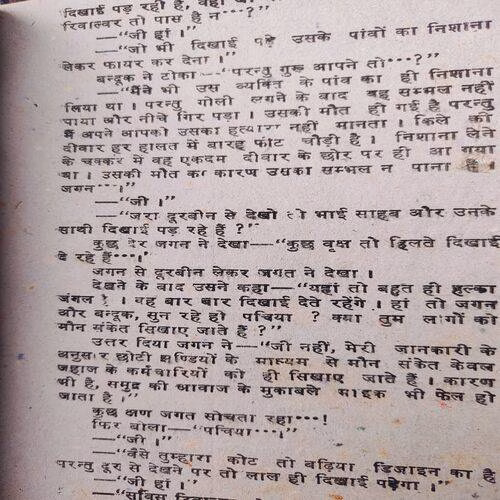 दिखाई पड़ रही है, वहां
रिवाल्वर तो पास है न···?”
—“जी हां।”
—“जो भी दिखाई पड़े उसके पांवों का निशाना
लेकर फायर कर देना।”
बन्दूक ने टोका—“परन्तु गुरू आपने तो···?”
—“मैंने भी उस व्यक्ति के पांव का ही निशाना
लिया था। परन्तु गोली लगने के बाद वह सम्भल नहीं
पाया और नीचे गिर पड़ा। उसकी मौत हो गई है परन्तु
मैं अपने आपको उसका हत्यारा नहीं मानता। किले की
दीवार हर हालत में बारह फीट चौड़ी है। निशाना लेने
के चक्कर में वह एकदम दीवार के छोर पर ही आ गया
था। उसकी मौत का कारण उसका सम्भल न पाना है।
जगन···।”
—“जी।”
—“जरा दूरबीन से देखो तो भाई साहब और उनके
साथी दिखाई पड़ रहे हैं?”
कुछ देर जगन ने देखा—“कुछ वृक्ष तो हिलते दिखाई
दे रहे हैं···।”
जगन से दूरबीन लेकर जगत ने देखा।
देखने के बाद उसने कहा—“यहां तो बहुत ही हल्का
जंगल है। वह बार बार दिखाई देते रहेंगे। हां तो जगन
और बन्दूक, सुन रहे हो पचिया? क्या तुम लोगों को
मौन संकेत सिखाए जाते हैं?”
उत्तर दिया जगन ने—“जी नहीं, मेरी जानकारी के
अनुसार छोटी झण्डियों के माध्यम से मौन संकेत केवल
जहाज के कर्मचारियों को ही सिखाए जाते हैं। कारण
भी है, समुद्र की आवाज के मुकाबले माइक भी फेल हो
जाता है।”
कुछ क्षण जगत सोचता रहा···!
फिर बोला—“पचिया···।”
—“जी।”
—“वैसे तुम्हारा कोट तो बढ़िया डिजाइन का है
परन्तु दूर से देखने पर तो लाल ही दिखाई पड़ेगा।”
—“जी हां।”
—“सर्विस